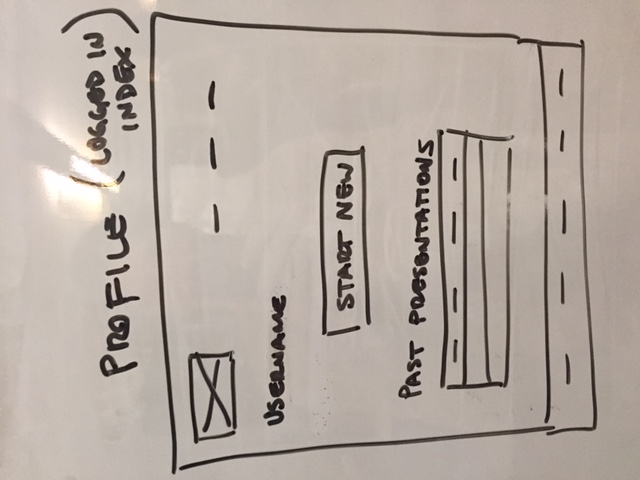 PROFILE (LOGGED IN
INDEX)
USERNAME
START NEW
PAST PRESENTATIONS